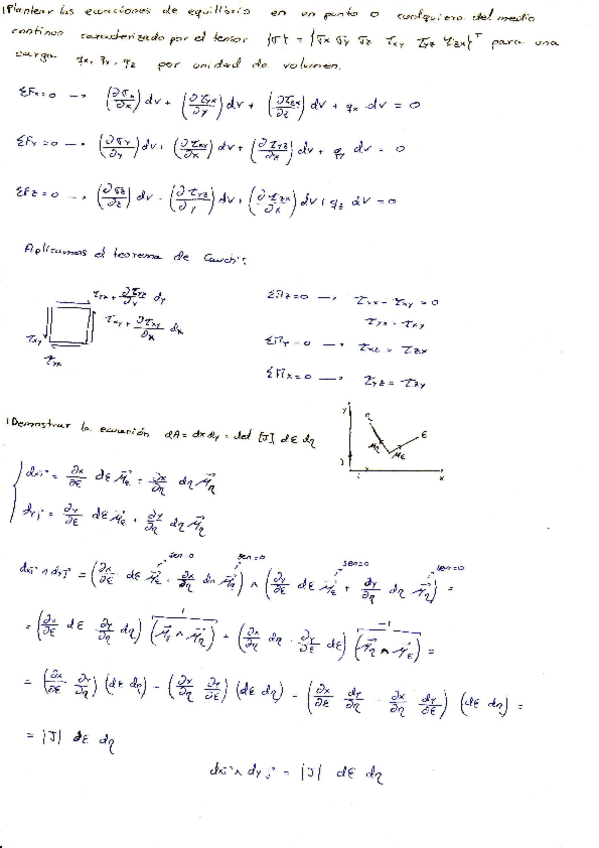 ¡Plantear las ecuaciones de equilibrio en un punto o cualquiera del medio
continuo caracterizado por el tensor {σ} = {σx σy σz τxy τyz τzx}ᵀ para una
carga qx, qy, qz por unidad de volumen.
ΣFx=0 → (∂σx/∂x) dv + (∂τyx/∂y) dv + (∂τzx/∂z) dv + qx dv = 0
ΣFy=0 → (∂σy/∂y) dv + (∂τxy/∂x) dv + (∂τyz/∂z) dv + qy dv = 0
ΣFz=0 → (∂σz/∂z) dv + (∂τyz/∂y) dv + (∂τzx/∂x) dv + qz dv = 0
Aplicamos el teorema de Cauchy:
τyx + ∂τyx/∂y dy
τxy + ∂τxy/∂x dx
τxy
τyx
ΣMz=0 → τyx - τxy = 0
τyx = τxy
ΣMy=0 → τxz = τzx
ΣMx=0 → τyz = τzy
¡Demostrar la ecuación dA = dx dy = det [J] dε dη
y η ε
μη με
j
i x
dx i = ∂x/∂ε dε με + ∂x/∂η dη μη
dy j = ∂y/∂ε dε με + ∂y/∂η dη μη
sen=0 sen=0 sen=0 sen=0
dx i ∧ dy j = (∂x/∂ε dε με + ∂x/∂η dη μη) ∧ (∂y/∂ε dε με + ∂y/∂η dη μη) =
1 -1
= (∂x/∂ε dε ∂y/∂η dη) (με ∧ μη) + (∂x/∂η dη · ∂y/∂ε dε) (μη ∧ με) =
= (∂x/∂ε ∂y/∂η) (dε dη) - (∂x/∂η ∂y/∂ε) (dε dη) = (∂x/∂ε ∂y/∂η - ∂x/∂η ∂y/∂ε) (dε dη) =
= |J| dε dη
dx i ∧ dy j = |J| dε dη